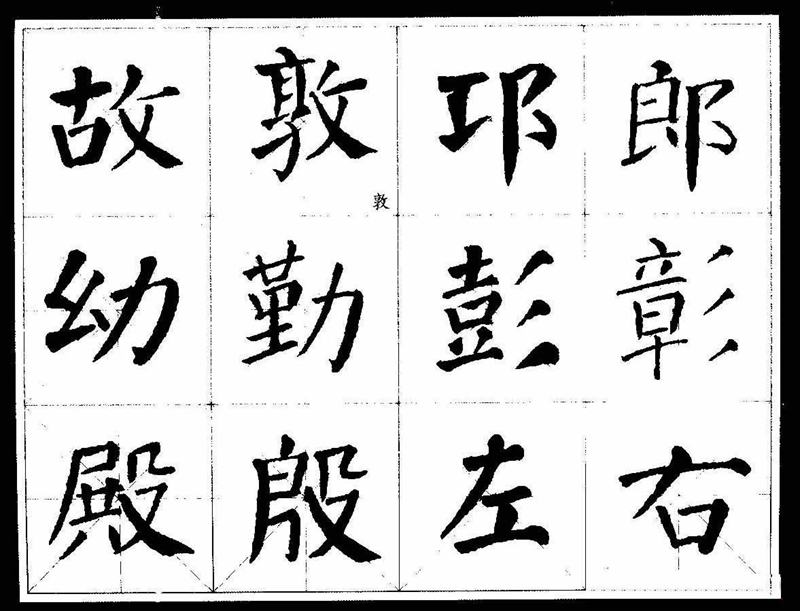 故敦邛郎
敦
幼勤彭彰
殿殷左右